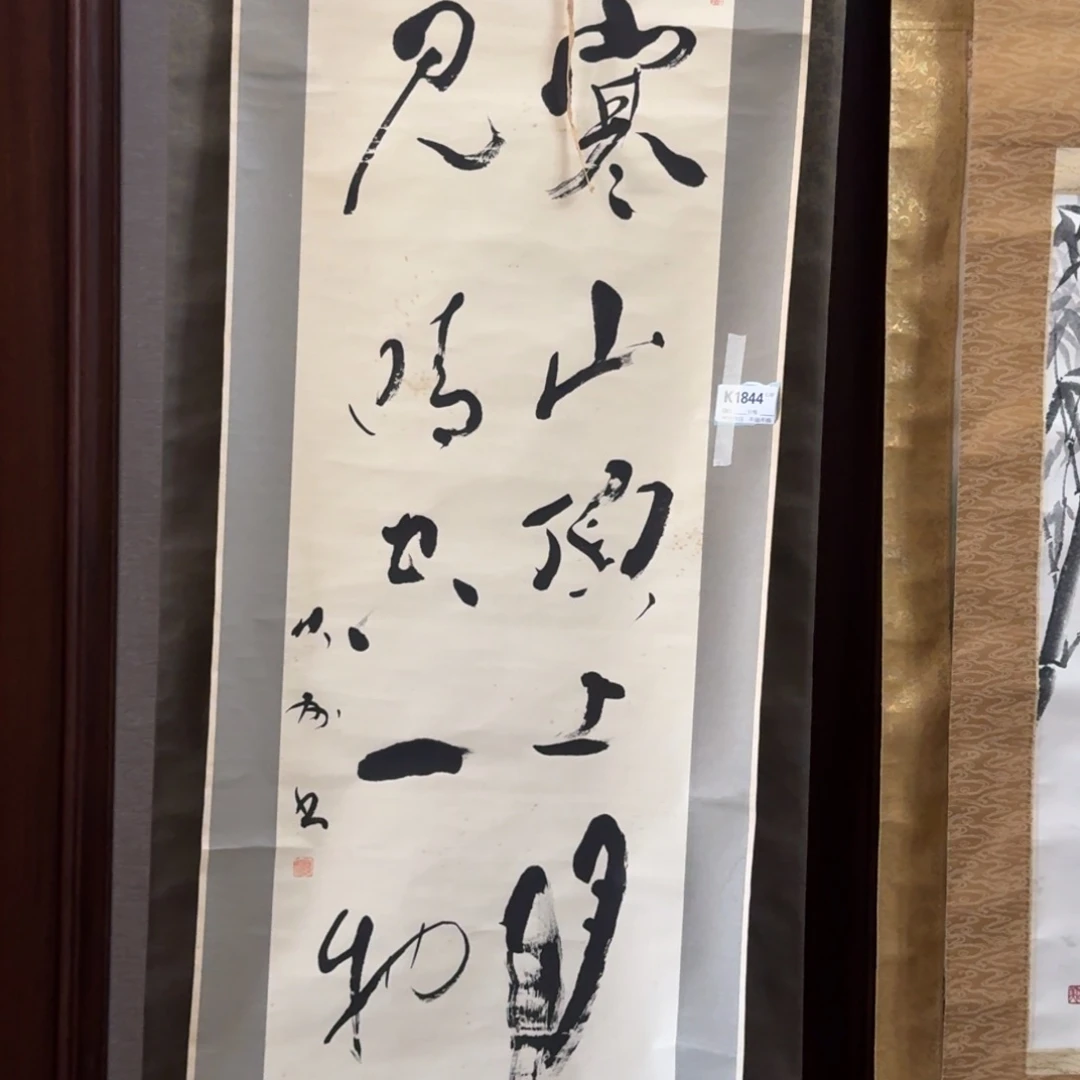 寒山頂上月
見晴空一物
K1844